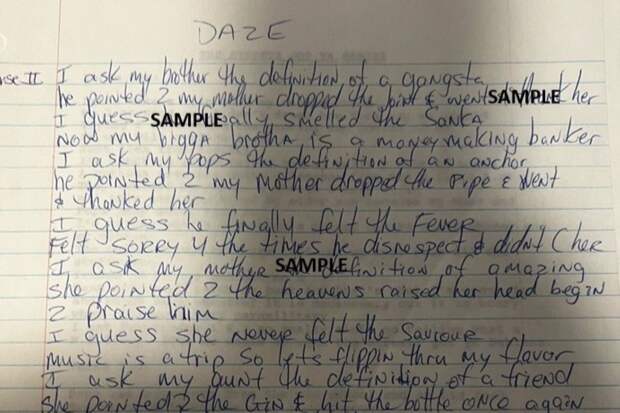 DAZE
se II I ask my brother the definition of a gangsta
he pointed 2 my mother dropped the joint & went SAMPLE her
I guess SAMPLE ally smelled the Sanka
Now my bigga brotha is a moneymaking banker
I ask my pops the definition of an anchor
he pointed 2 my Mother dropped the Pipe & went
& thanked her
I guess he finally felt the Fever
Felt SORRY 4 the times he disrespect & didn't C her
I ask my mother SAMPLE efinition of amazing
she pointed 2 the heavens raised her head begin
2 praise him
I guess she never felt the Saviour
music is a trip so let's flippin thru my flavor
I ask my aunt the definition of a friend
She pointed 2 the Gin & hit the bottle once again